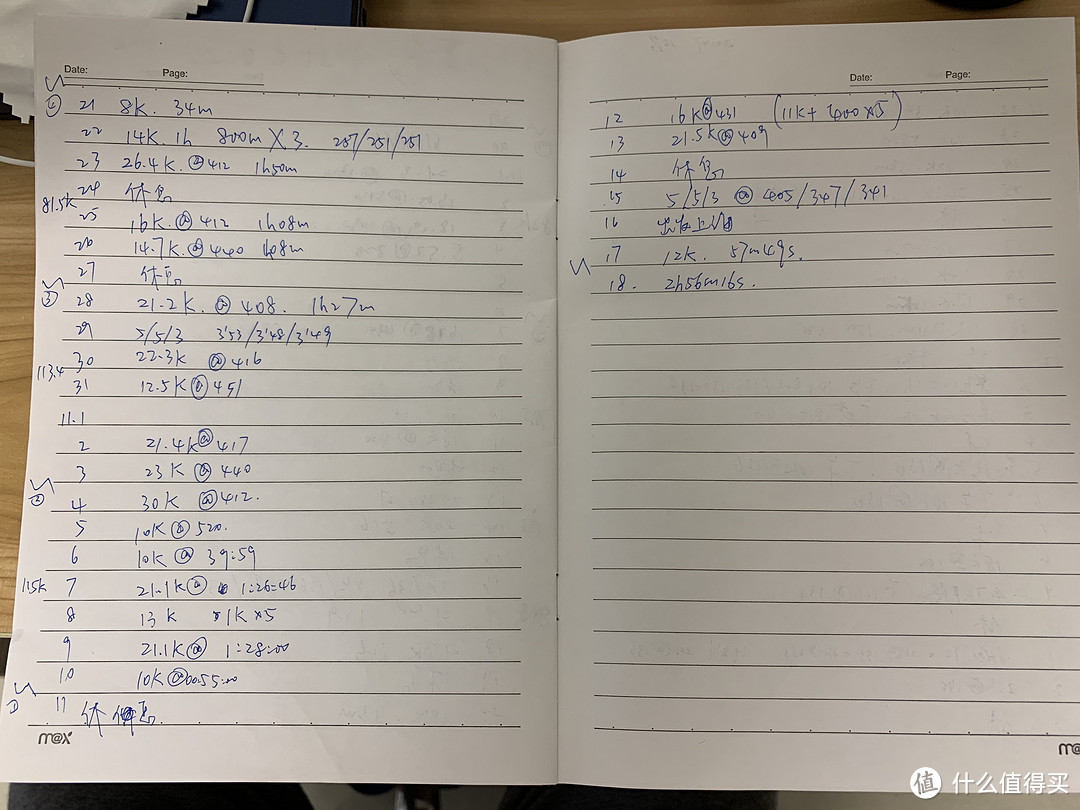 Date: Page:
④ 21 8K. 34m
22 14K. 1h 800m×3. 257/251/251
23 26.4K. @412 1h50m
24 休息
81.5K
25 16K. @412 1h08m
26 14.7K. @440 1h08m
27 休息
③ 28 21.2K. @408. 1h27m
29 5/5/3 3'53/3'48/3'49
30 22.3K @416
113.4
31 12.5K@451
11.1
2 21.4K@417
3 23K @440
② 4 30K @412.
5 10K@520.
6 10K@ 39:59
115K 7 21.1K@ 1:26:46
8 13K 1K×5
9 21.1K@ 1:28:00
10 10K@00:55:00
① 11 休 息.
m@x
Date: Page:
12 16K@431 (11K+400×5)
13 21.5K@409
14 休息
15 5/5/3 @ 405/347/341
16 出发上海
17 12K. 57m49s.
18. 2h56m16s.
m@
值 什么值得买